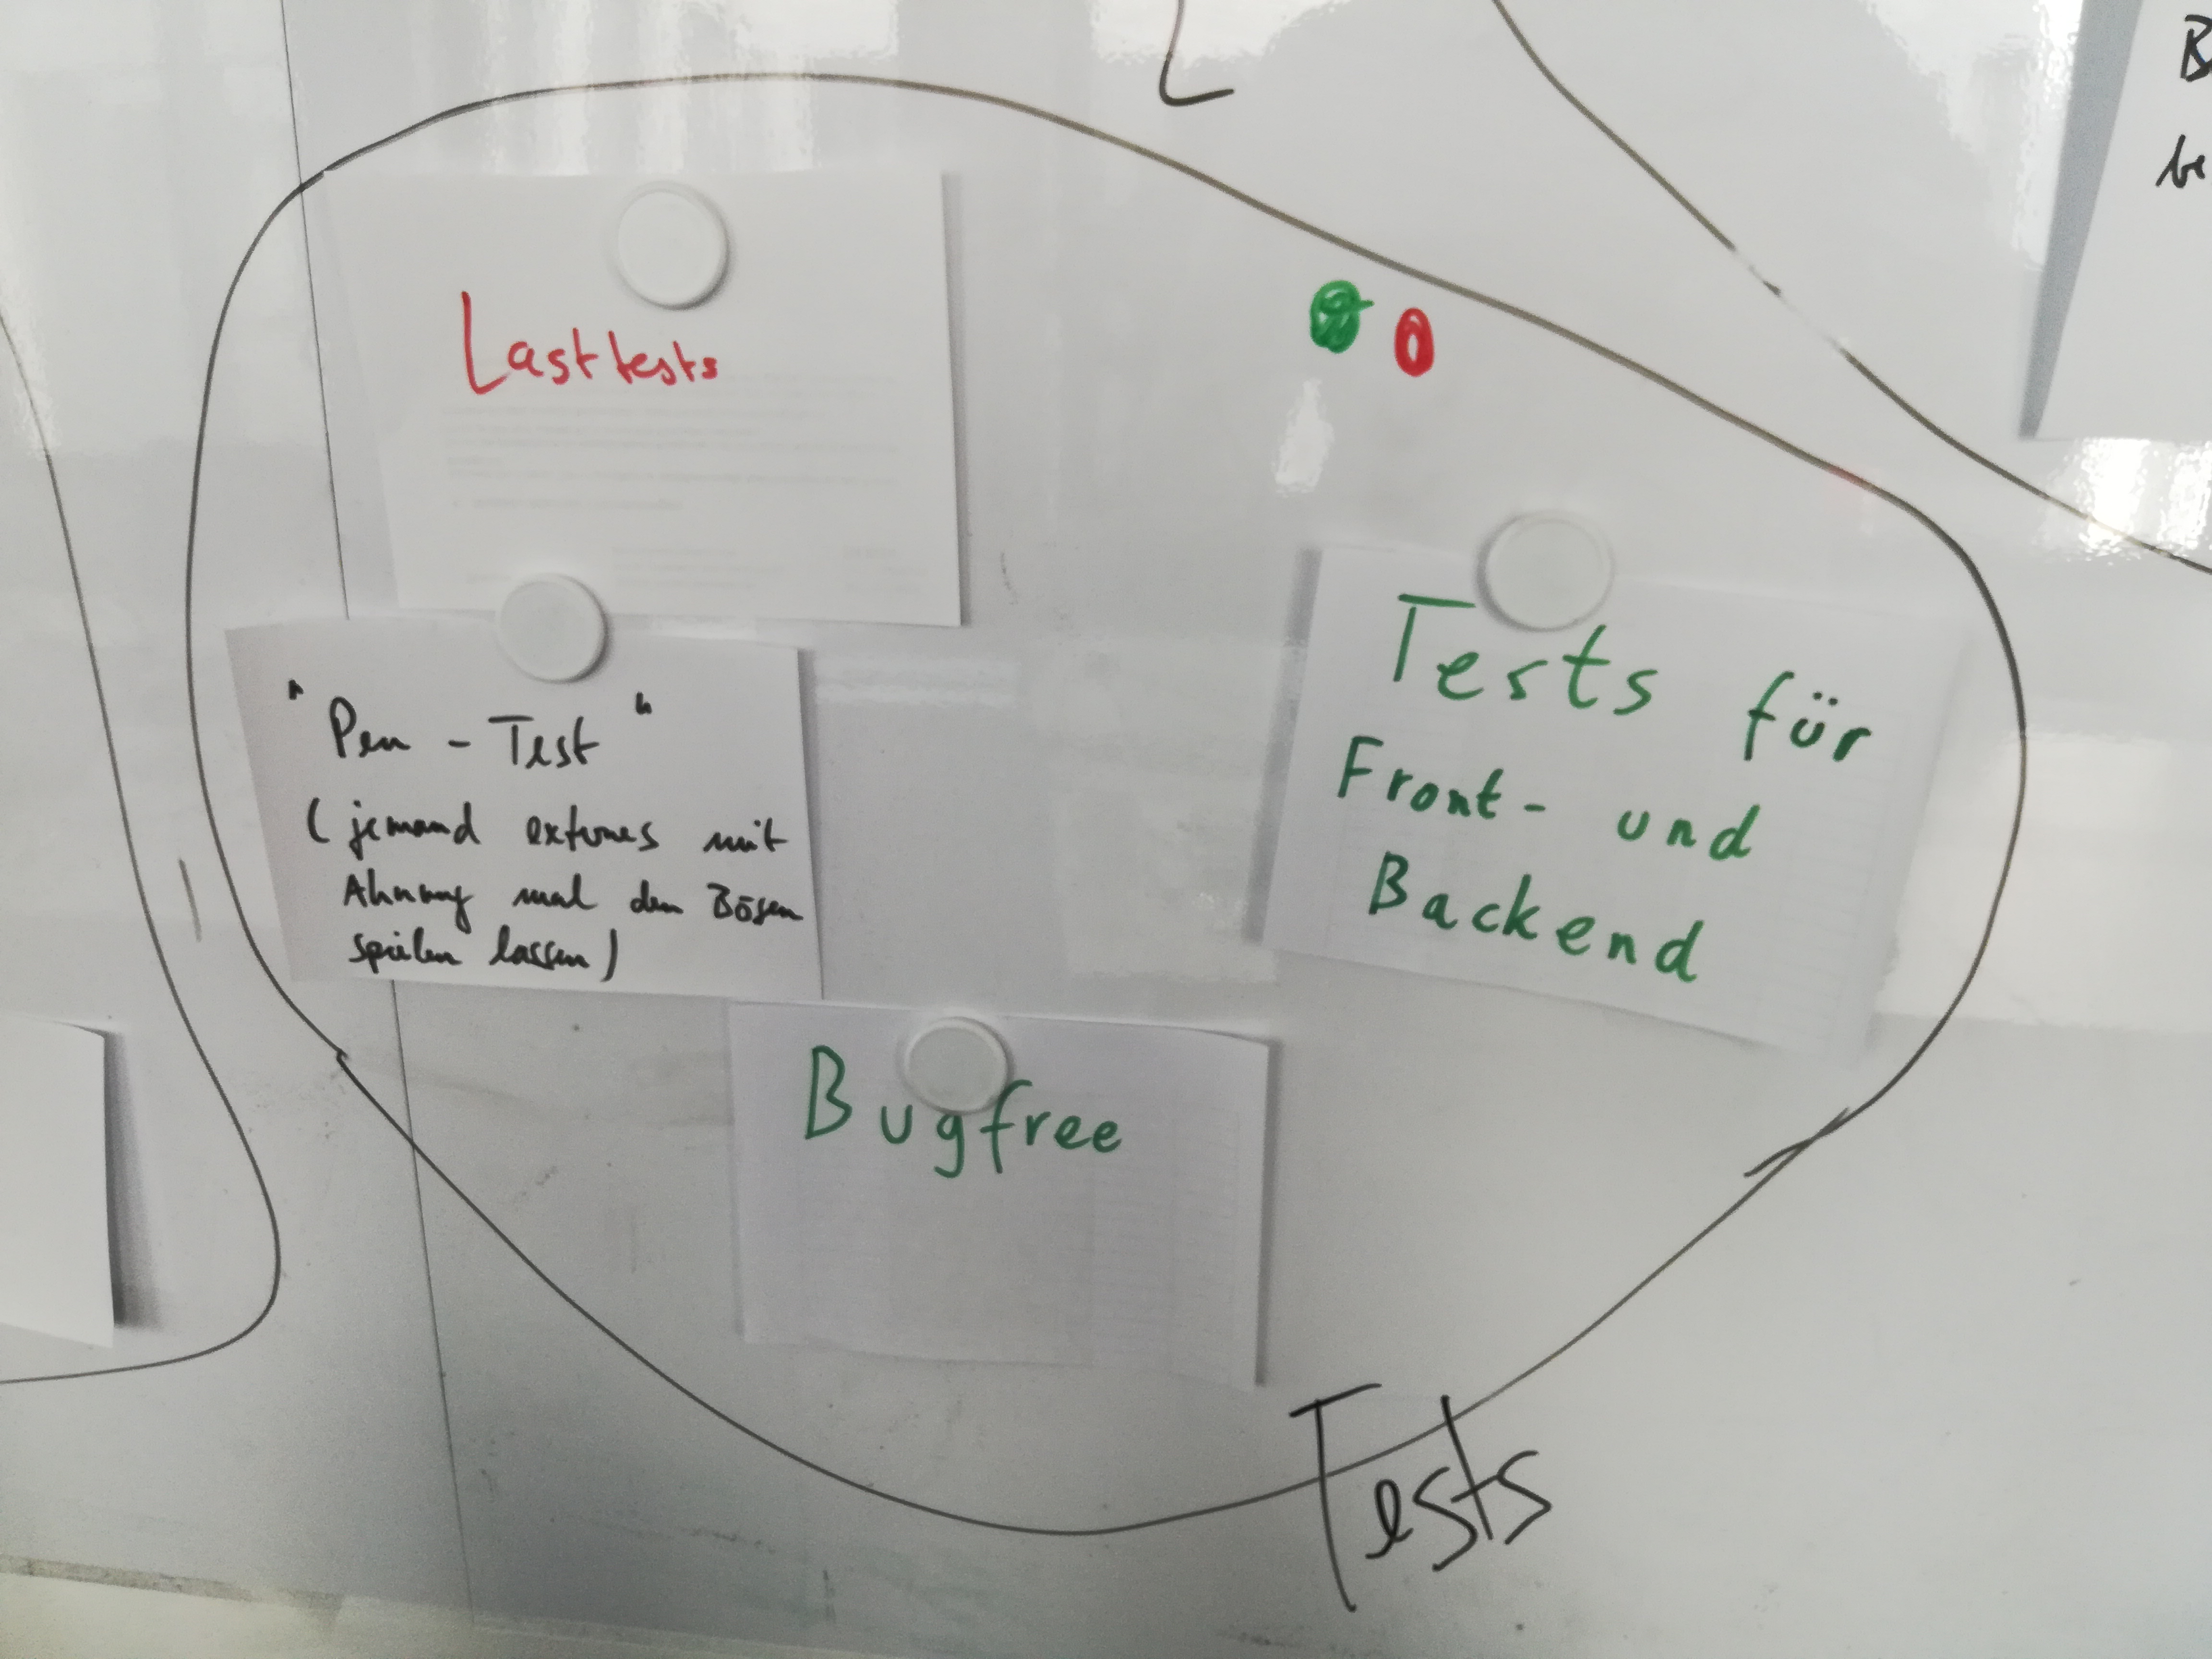 Lasttests
"Pen-Test"
(jemand externes mit
Ahnung mal den Bösen
spielen lassen)
Tests für
Front- und
Backend
Bugfree
Tests
B
be